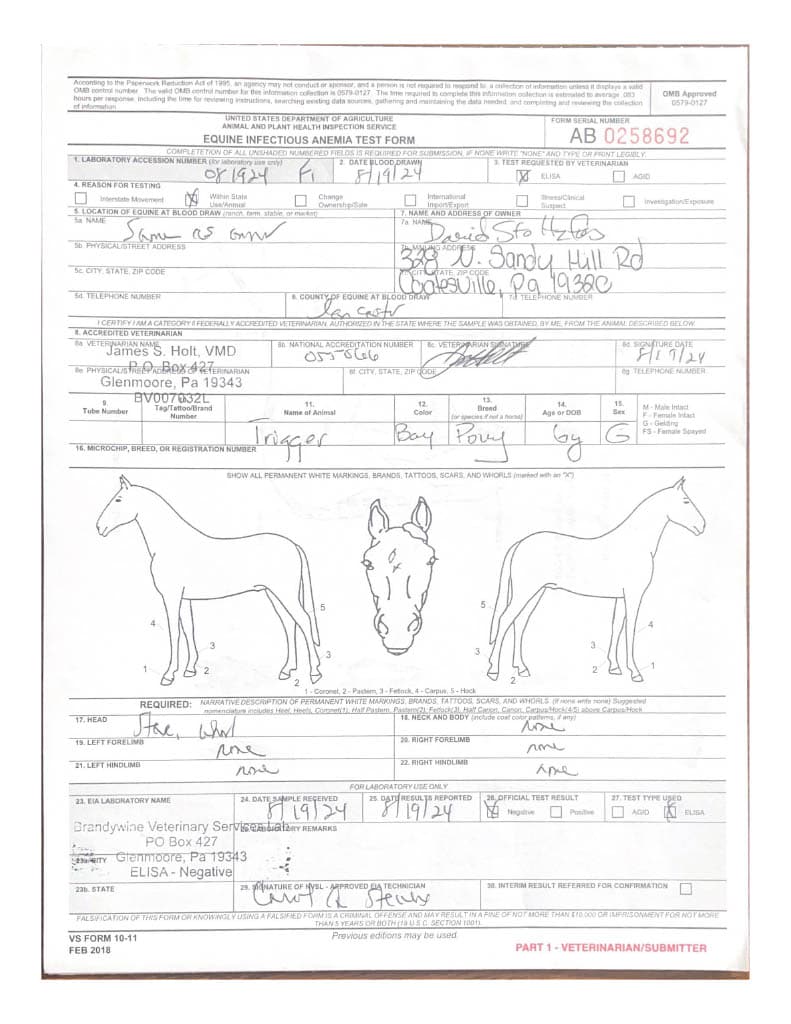 According to the Paperwork Reduction Act of 1995, an agency may not conduct or sponsor, and a person is not required to respond to, a collection of information unless it displays a valid
OMB control number. The valid OMB control number for this information collection is 0579-0127. The time required to complete this information collection is estimated to average .083
hours per response, including the time for reviewing instructions, searching existing data sources, gathering and maintaining the data needed, and completing and reviewing the collection
of information.
OMB Approved
0579-0127
UNITED STATES DEPARTMENT OF AGRICULTURE
ANIMAL AND PLANT HEALTH INSPECTION SERVICE
EQUINE INFECTIOUS ANEMIA TEST FORM
FORM SERIAL NUMBER
AB 0258692
COMPLETETION OF ALL UNSHADED NUMBERED FIELDS IS REQUIRED FOR SUBMISSION, IF NONE WRITE "NONE" AND TYPE OR PRINT LEGIBLY.
1. LABORATORY ACCESSION NUMBER (for laboratory use only)
081924
2. DATE BLOOD DRAWN
8/19/24
3. TEST REQUESTED BY VETERINARIAN
ELISA
AGID
4. REASON FOR TESTING
Interstate Movement
Within State Use/Animal
Change Ownership/Sale
International Import/Export
Stress/Clinical Suspect
Investigation/Exposure
5. LOCATION OF EQUINE AT BLOOD DRAW (ranch, farm, stable, or market)
7. NAME AND ADDRESS OF OWNER
5a NAME
Same as owner
7a. NAME
David Stoltzfos
5b. PHYSICAL/STREET ADDRESS
7b. MAILING ADDRESS
328 N. Sandy Hill Rd
5c. CITY, STATE, ZIP CODE
CITY, STATE, ZIP CODE
Coatesville, Pa 19320
5d. TELEPHONE NUMBER
6. COUNTY OF EQUINE AT BLOOD DRAW
Lancaster
7d TELEPHONE NUMBER
I CERTIFY I AM A CATEGORY II FEDERALLY ACCREDITED VETERINARIAN, AUTHORIZED IN THE STATE WHERE THE SAMPLE WAS OBTAINED, BY ME, FROM THE ANIMAL DESCRIBED BELOW.
8. ACCREDITED VETERINARIAN
8a VETERINARIAN NAME
James S. Holt, VMD
8b. NATIONAL ACCREDITATION NUMBER
055066
8c. VETERINARIAN SIGNATURE
8d SIGNATURE DATE
8/19/24
P.O. Box 427
8e PHYSICAL/STREET ADDRESS OF VETERINARIAN
8f. CITY, STATE, ZIP CODE
8g. TELEPHONE NUMBER
Glenmoore, Pa 19343
BV007032L
9. Tube Number
Tag/Tattoo/Brand Number
11. Name of Animal
12. Color
13. Breed (or species if not a horse)
14. Age or DOB
15. Sex
M - Male Intact
F - Female Intact
G - Gelding
FS - Female Spayed
Trigger Bay Pony 6y G
16. MICROCHIP, BREED, OR REGISTRATION NUMBER
SHOW ALL PERMANENT WHITE MARKINGS, BRANDS, TATTOOS, SCARS, AND WHORLS (marked with an "X")
5 5
4 4
3 3 3 3
1 2 2 2 2 1
1 - Coronet, 2 - Pastern, 3 - Fetlock, 4 - Carpus, 5 - Hock
REQUIRED: NARRATIVE DESCRIPTION OF PERMANENT WHITE MARKINGS, BRANDS, TATTOOS, SCARS, AND WHORLS. (If none write none) Suggested
nomenclature includes Heel, Heels, Coronet(1), Half Pastern, Pastern(2), Fetlock(3), Half Canon, Canon, Carpus/Hock(4/5) above Carpus/Hock
17. HEAD
Star, whorl
18. NECK AND BODY (include coat color patterns, if any)
none
19. LEFT FORELIMB
none
20. RIGHT FORELIMB
none
21. LEFT HINDLIMB
none
22. RIGHT HINDLIMB
none
FOR LABORATORY USE ONLY
23. EIA LABORATORY NAME
24. DATE SAMPLE RECEIVED
8/19/24
25. DATE RESULTS REPORTED
8/19/24
26. OFFICIAL TEST RESULT
Negative
Positive
27. TEST TYPE USED
AGID
ELISA
Brandywine Veterinary Services Lab
28. LABORATORY REMARKS
PO Box 427
23a. CITY
Glenmoore, Pa 19343
ELISA - Negative
23b. STATE
29. SIGNATURE OF NVSL - APPROVED EIA TECHNICIAN
30. INTERIM RESULT REFERRED FOR CONFIRMATION
FALSIFICATION OF THIS FORM OR KNOWINGLY USING A FALSIFIED FORM IS A CRIMINAL OFFENSE AND MAY RESULT IN A FINE OF NOT MORE THAN $10,000 OR IMPRISONMENT FOR NOT MORE
THAN 5 YEARS OR BOTH (18 U.S.C. SECTION 1001).
VS FORM 10-11
FEB 2018
Previous editions may be used.
PART 1 - VETERINARIAN/SUBMITTER